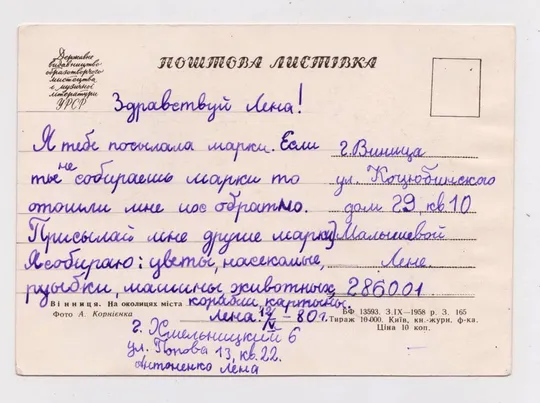 Державне
видавництво
образотворчого
мистецтва
і музичної
літератури
УРСР
ПОШТОВА ЛИСТІВКА
Здравствуй Лена!
Я тебе посылала марки. Если
ты не собираешь марки то
отошли мне иос обратно.
Присылай мне другие марки)
Я собираю: цветы, насекомые,
рыбки, машины, животных,
корабли, картины.
Лена. 12/IV - 80 г.
г. Виница
ул. Коцюбинского
дом 29 кв 10
Малышевой
Лене
286001
Вінниця. На околицях міста
Фото А. Корнієнка
БФ 13593. 3.IX—1958 р. З. 165
Тираж 10·000. Київ, кн.-журн. ф-ка.
Ціна 10 коп.
г. Хмельницкий 6
ул. Попова 13, кв. 22.
Антоненко Лена